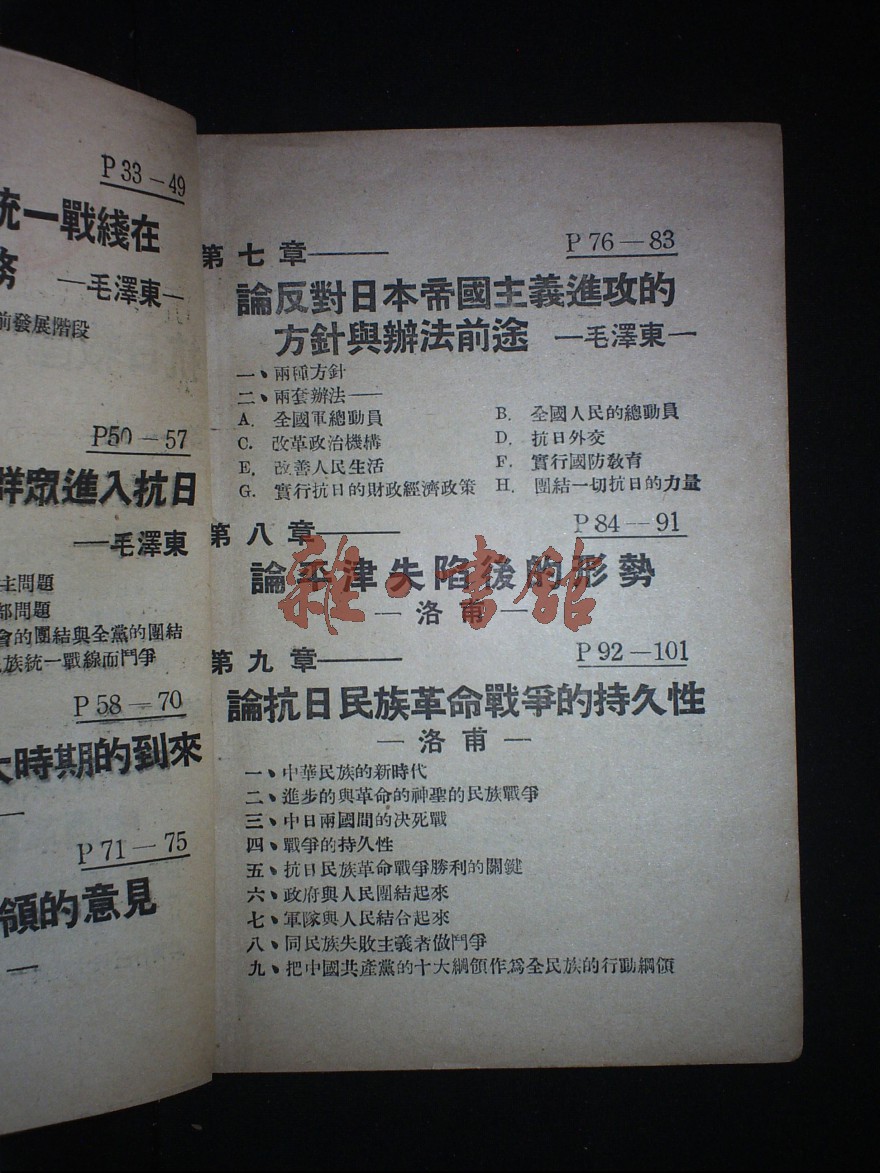 P 33－49
統一戰綫在
務 —毛澤東—
前發展階段
P50－57
群眾進入抗日
—毛澤東
主問題
部問題
會的團結與全黨的團結
族統一戰線而鬥爭
P 58－70
大時期的到來
—
P 71－75
領的意見
—
第七章—— P 76－83
論反對日本帝國主義進攻的
方針與辦法前途 —毛澤東—
一、兩種方針
二、兩套辦法——
A. 全國軍總動員 B. 全國人民的總動員
C. 改革政治機構 D. 抗日外交
E. 改善人民生活 F. 實行國防教育
G. 實行抗日的財政經濟政策 H. 團結一切抗日的力量
第八章—— P 84－91
論平津失陷後的形勢
—洛甫—
雜·書館
第九章—— P 92－101
論抗日民族革命戰爭的持久性
—洛甫—
一、中華民族的新時代
二、進步的與革命的神聖的民族戰爭
三、中日兩國間的決死戰
四、戰爭的持久性
五、抗日民族革命戰爭勝利的關鍵
六、政府與人民團結起來
七、軍隊與人民結合起來
八、同民族失敗主義者做鬥爭
九、把中國共產黨的十大綱領作為全民族的行動綱領